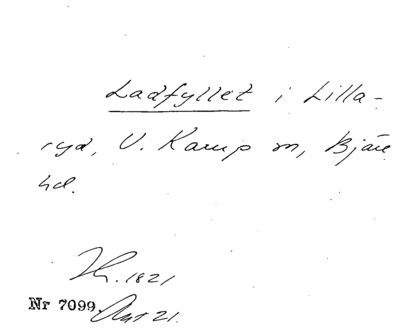 Ladfyllet i Lilla-
ryd, V. Karup sn, Bjäre
hd.
Th. 1821
Nr 7099. Avs 21.